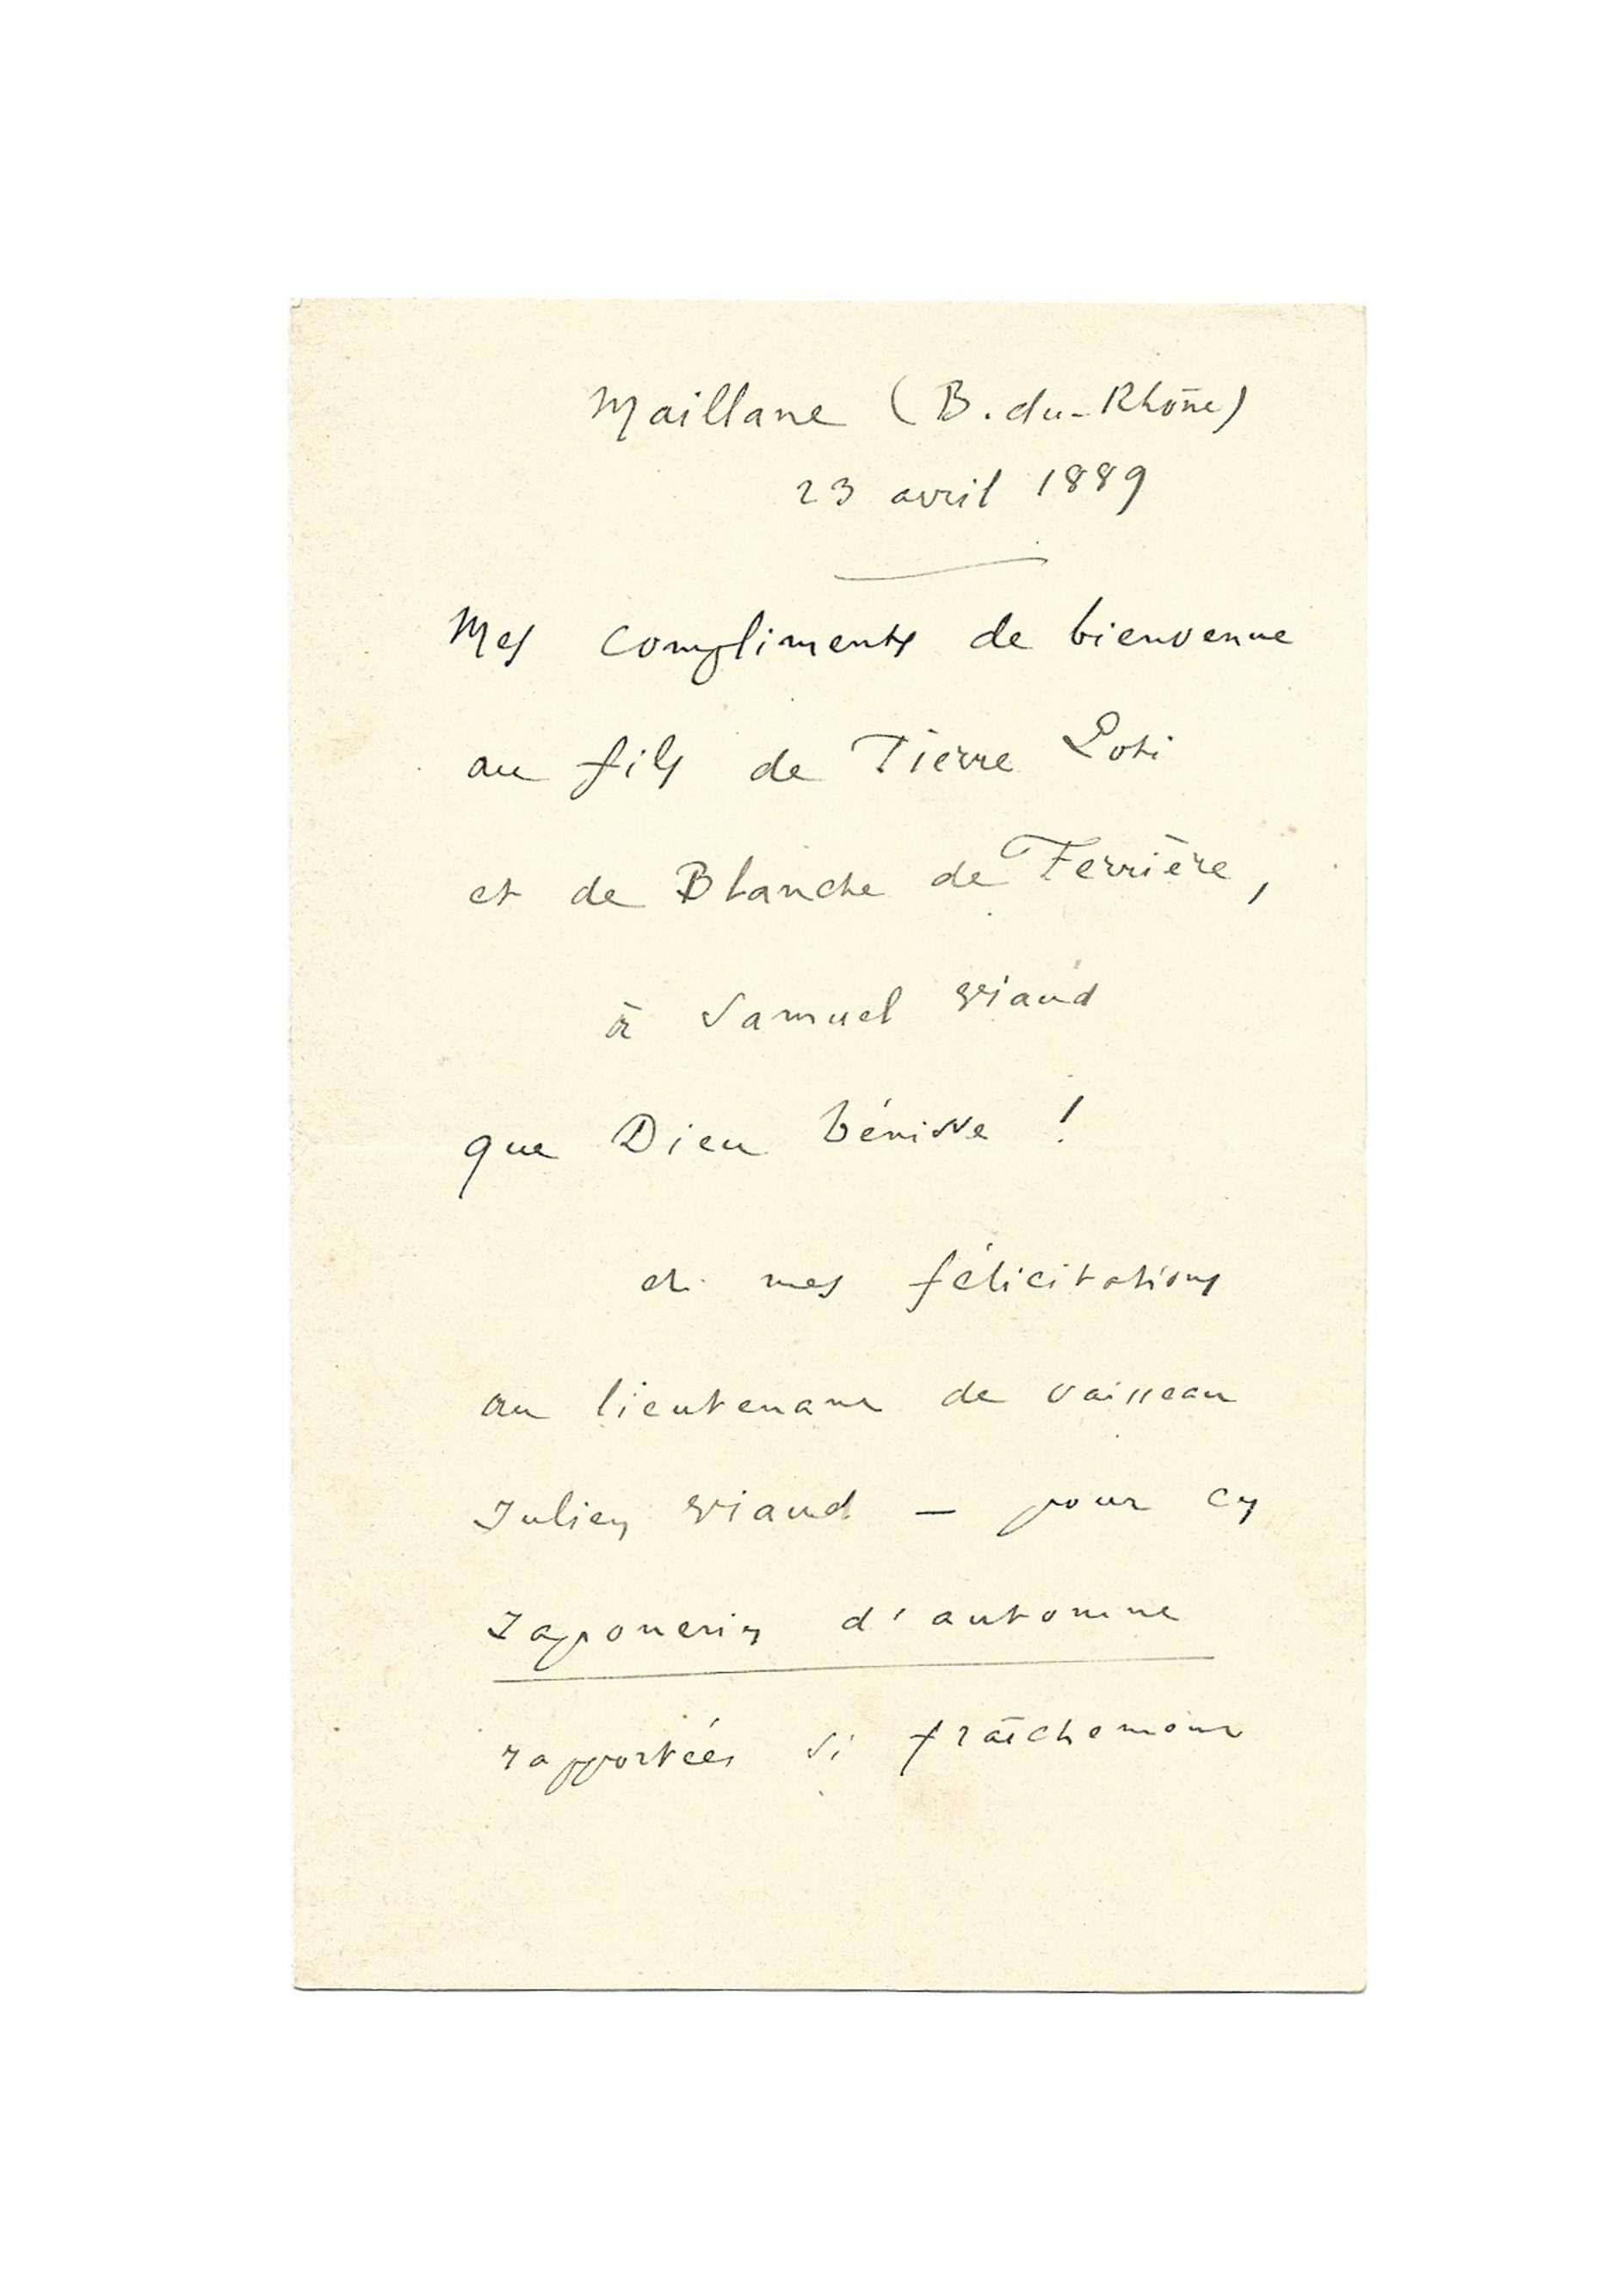 Maillane (B. du-Rhône)
23 avril 1889
Mes compliments de bienvenue
au fils de Pierre Loti
et de Blanche de Ferrière,
à Samuel Viaud
que Dieu bénisse !
et mes félicitations
au lieutenant de vaisseau
Julien Viaud — pour ces
Japoneries d'automne
rapportées si fraîchement